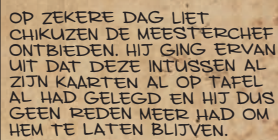 OP ZEKERE DAG LIET
CHIKUZEN DE MEESTERCHEF
ONTBIEDEN. HIJ GING ERVAN
UIT DAT DEZE INTUSSEN AL
ZIJN KAARTEN AL OP TAFEL
AL HAD GELEGD EN HIJ DUS
GEEN REDEN MEER HAD OM
HEM TE LATEN BLIJVEN.